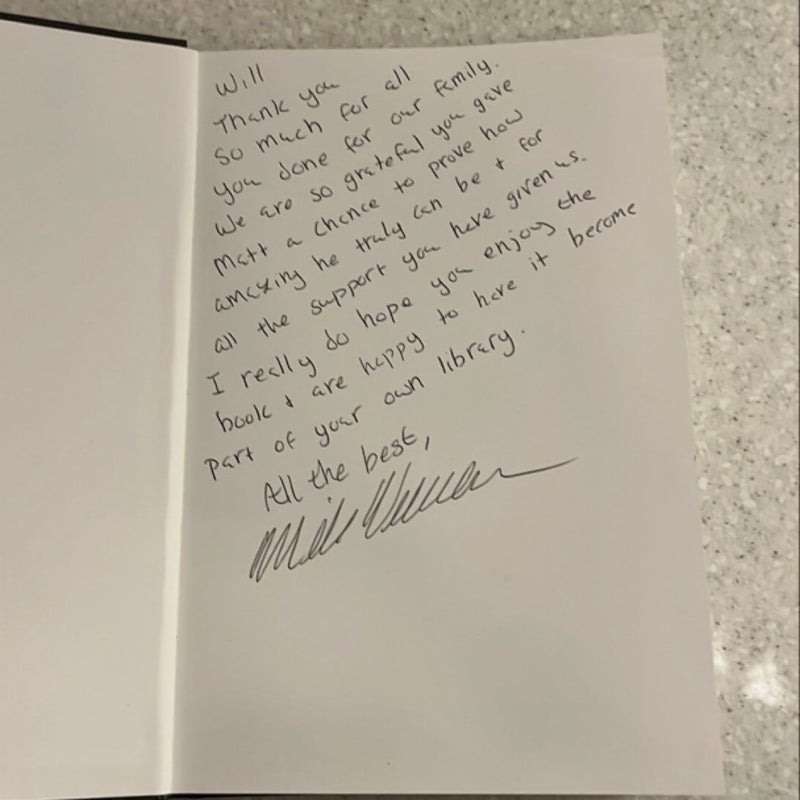 Will
Thank you
So much for all
you done for our family.
We are so grateful you gave
Matt a chance to prove how
amazing he truly can be & for
all the support you have given us.
I really do hope you enjoy the
book & are happy to have it become
part of your own library.
All the best,